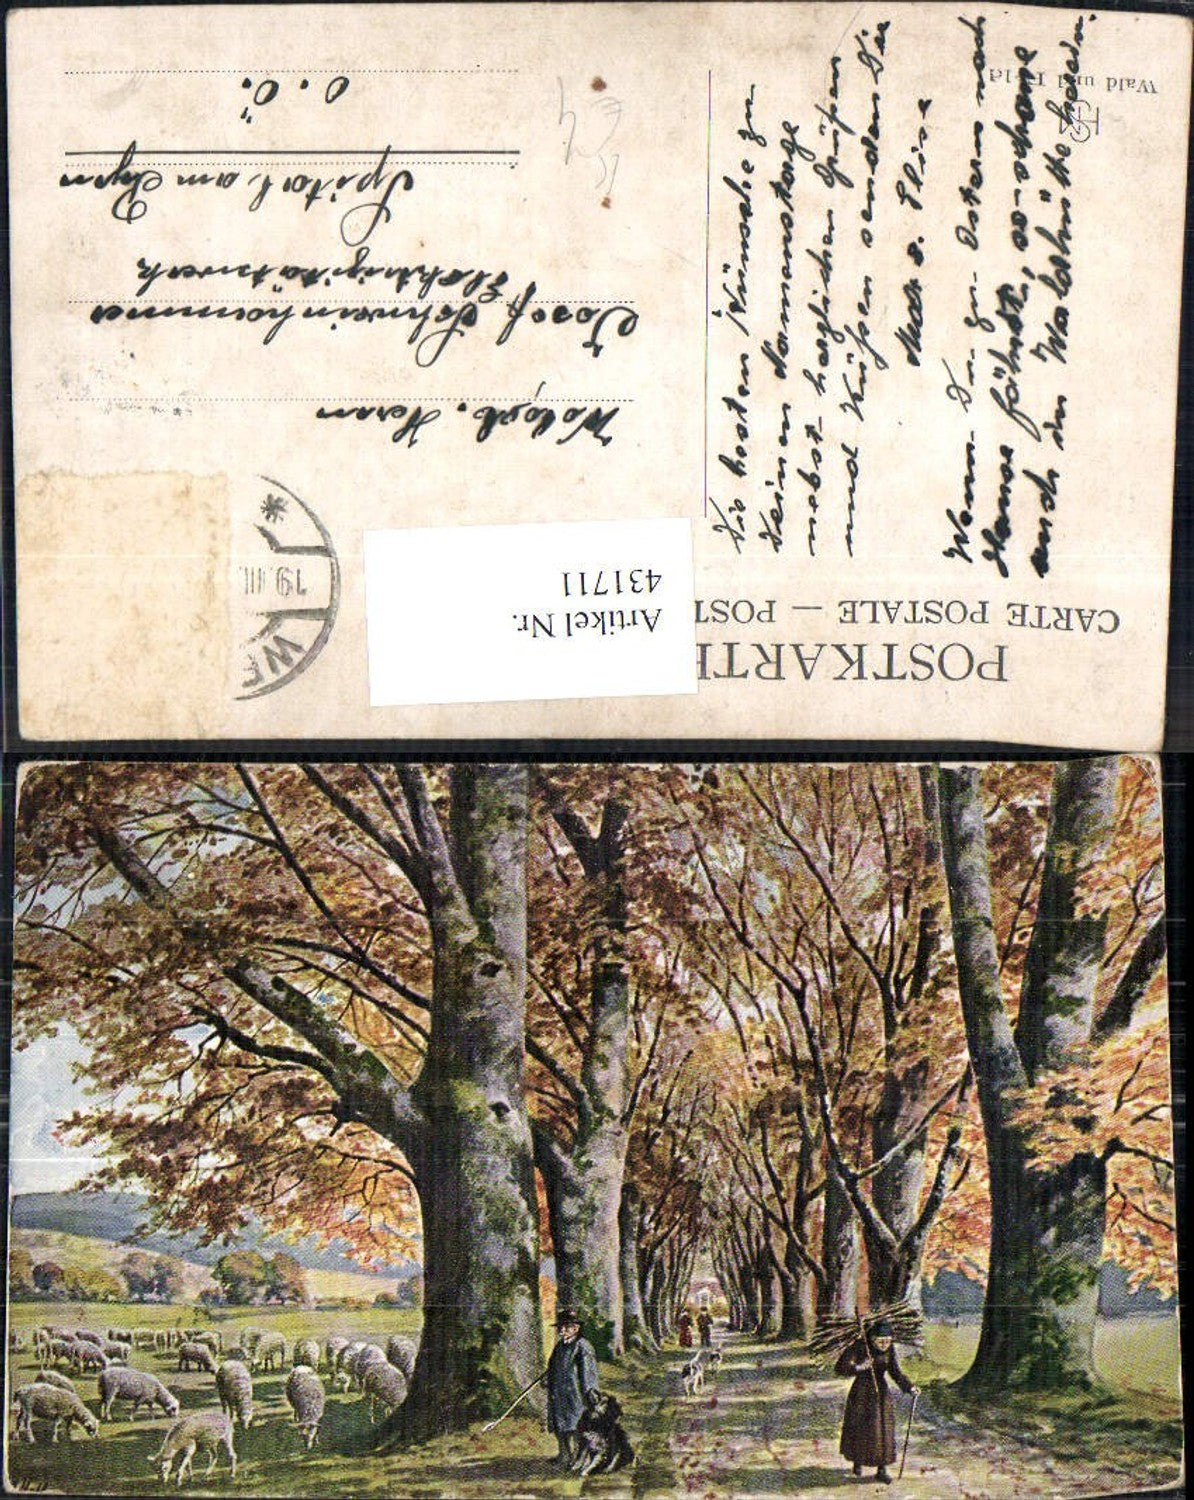 POSTKARTE
CARTE POSTALE — POST
Artikel Nr.
431711
WE
19.III.
*
Wohlgb. Herrn
Josef Schweinhammer
Elektrizitätswerk
Spital am Pyrn
O.Ö.
Die besten Wünsche zu
Deinem Namenstage
nebst herzlichen Grüßen
und Küßen senden Dir
Max u. Elise
Wenn Du zu Ostern nach
Hause fährst, so
auch in
Wald und Feld